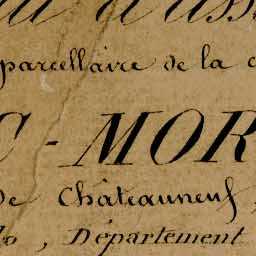 d'ass
parcellaire de la c
C-MOR
De Châteauneuf,
lo, Département